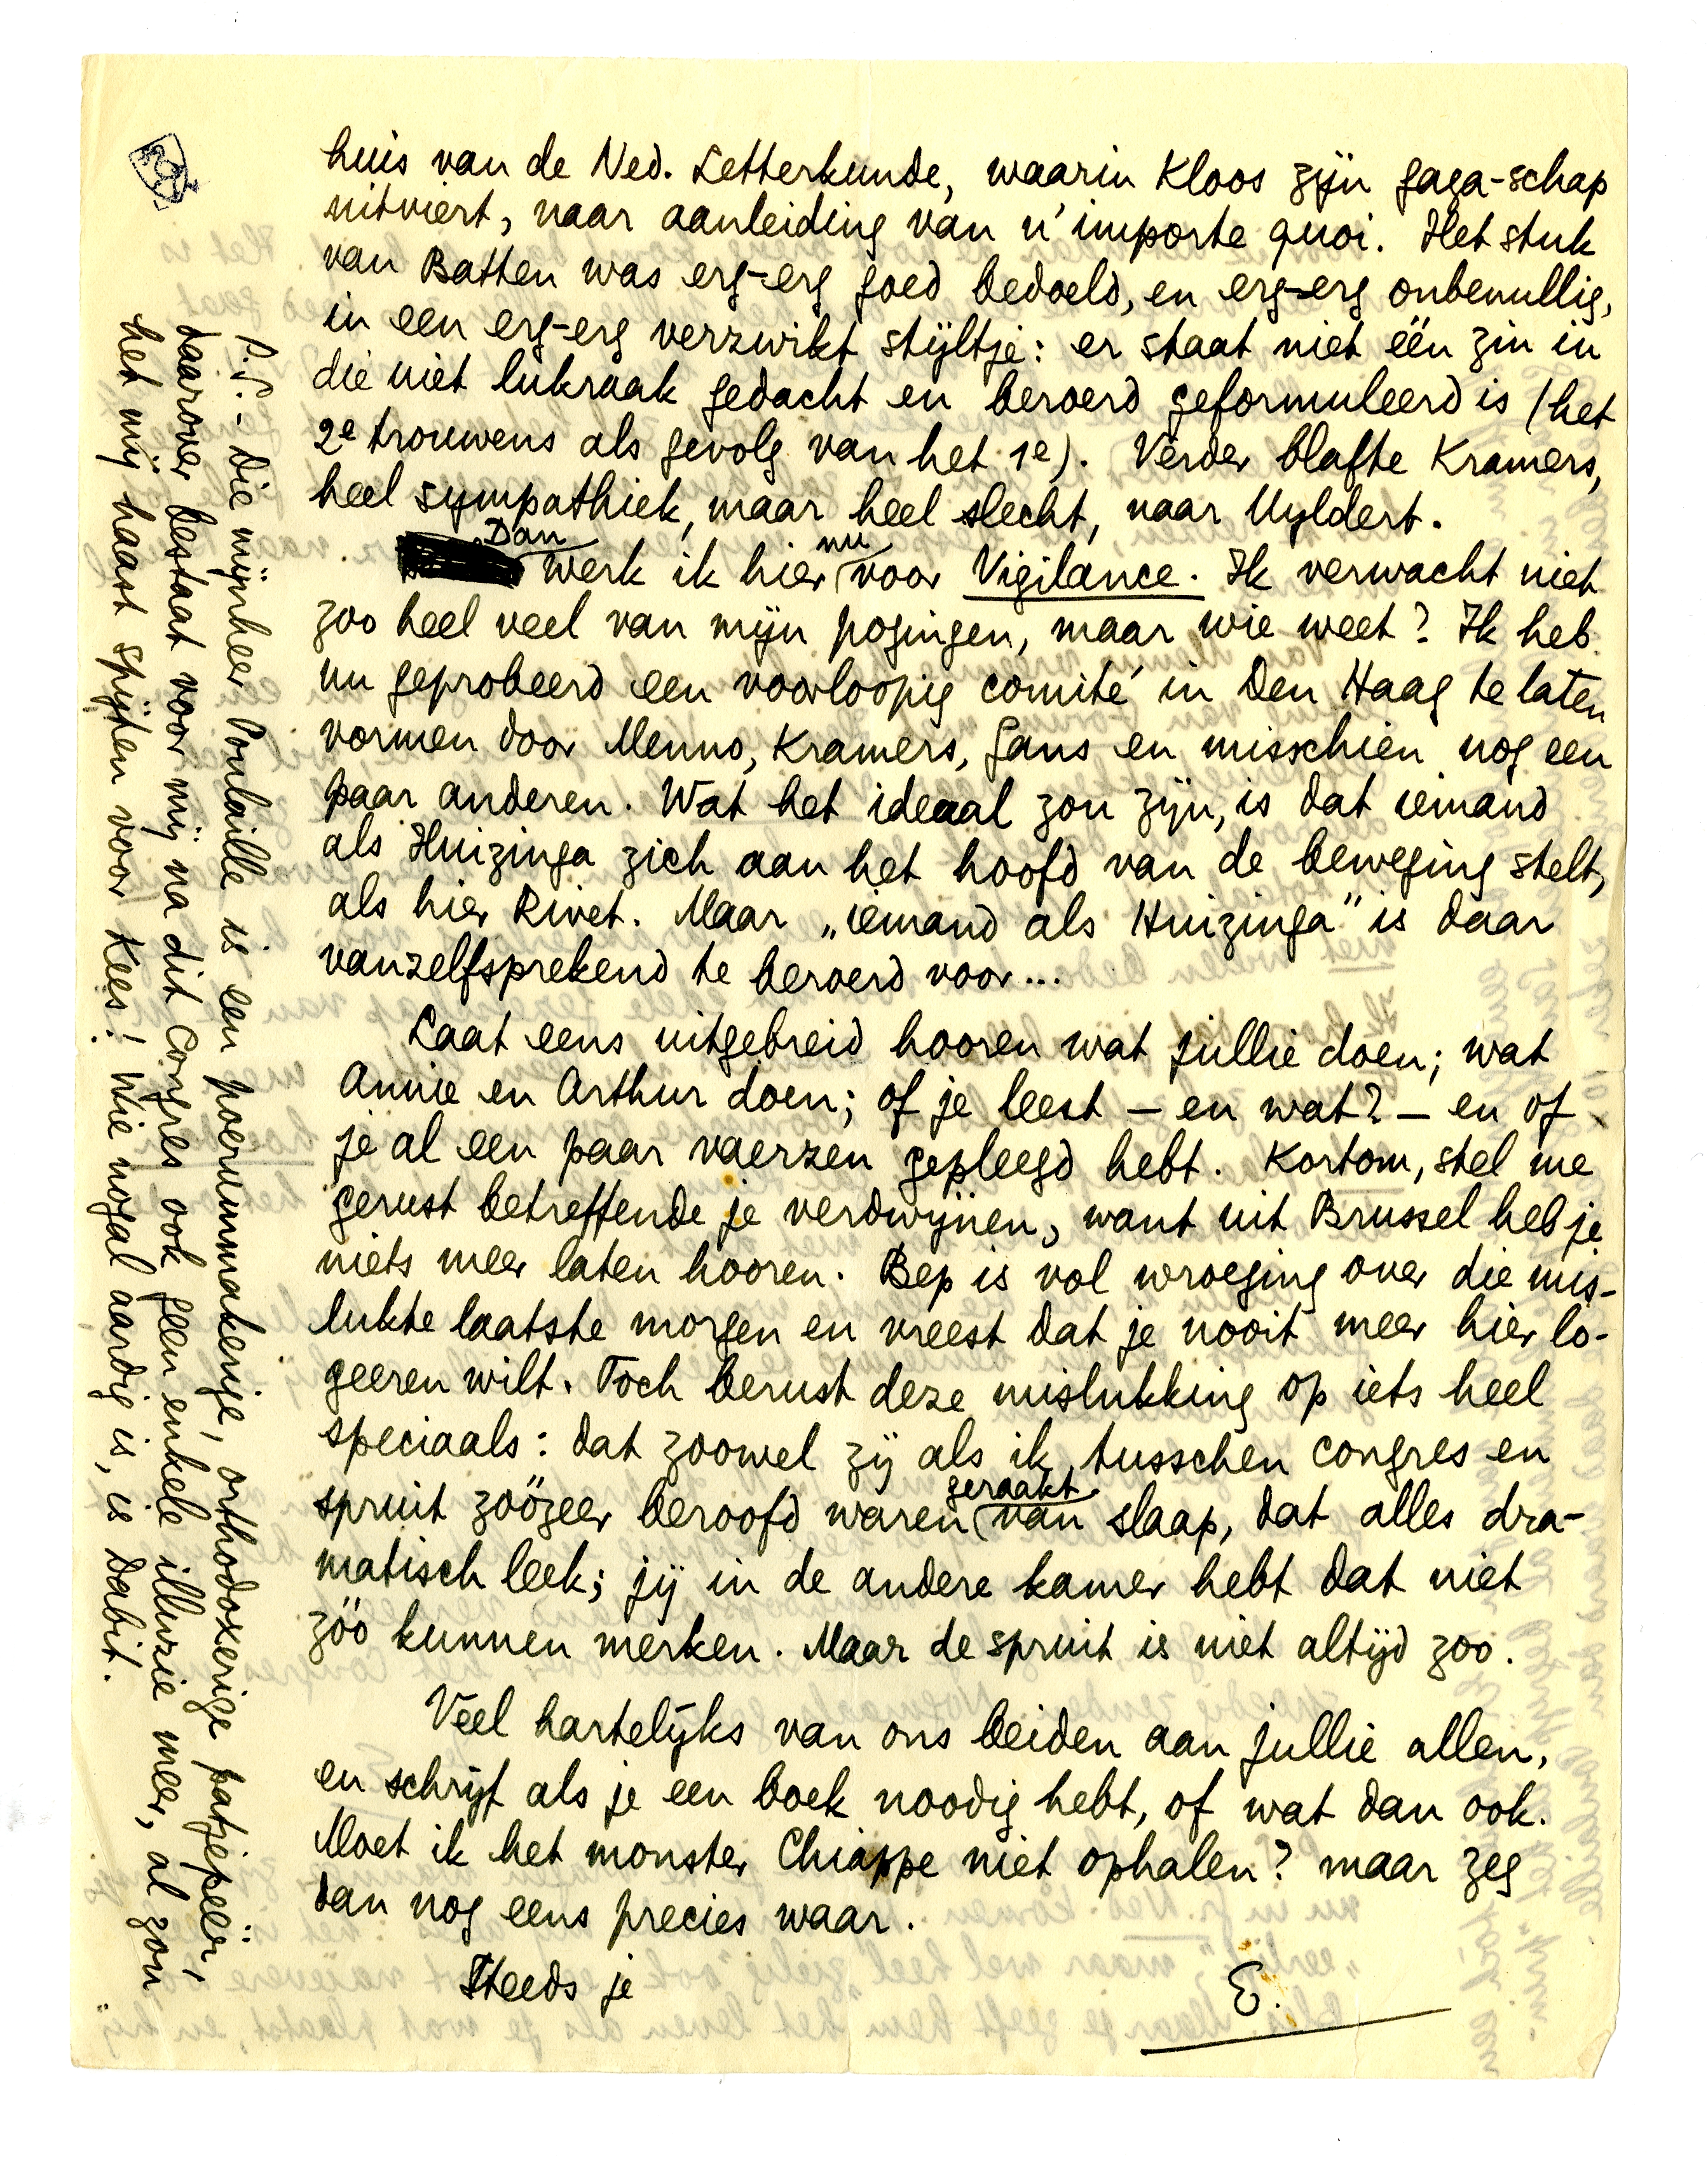 huis van de Ned. Letterkunde, waarin Kloos zijn gaga-schap
uitviert, naar aanleiding van n'importe quoi. Het stuk
van Batten was erg-erg goed bedoeld, en erg-erg onbenullig,
in een erg-erg verzwikt stijltje: er staat niet één zin in
die niet lukraak gedacht en beroerd geformuleerd is (het
2e trouwens als gevolg van het 1e). Verder blafte Kramers,
heel sympathiek, maar heel slecht, naar Uyldert.
Dan werk ik hier nu voor Vigilance. Ik verwacht niet
zoo heel veel van mijn pogingen, maar wie weet? Ik heb
nu geprobeerd een voorloopig comité in Den Haag te laten
vormen door Menno, Kramers, Gans en misschien nog een
paar anderen. Wat het ideaal zou zijn, is dat iemand
als Huizinga zich aan het hoofd van de beweging stelt,
als hier Rivet. Maar „iemand als Huizinga" is daar
vanzelfsprekend te beroerd voor...
Laat eens uitgebreid hooren wat jullie doen; wat
Annie en Arthur doen; of je leest – en wat? – en of
je al een paar vaerzen gepleegd hebt. Kortom, stel me
gerust betreffende je verdwijnen, want uit Brussel heb je
niets meer laten hooren. Bep is vol wroeging over die mis-
lukte laatste morgen en vreest dat je nooit meer hier lo-
geeren wilt. Toch berust deze mislukking op iets heel
speciaals: dat zoowel zij als ik, tusschen congres en
spruit zoózeer beroofd waren geraakt van slaap, dat alles dra-
matisch leek; jij in de andere kamer hebt dat niet
zóo kunnen merken. Maar de spruit is niet altijd zoo.
Veel hartelijks van ons beiden aan jullie allen,
en schrijf als je een boek noodig hebt, of wat dan ook.
Moet ik het monster Chiappe niet ophalen? maar zeg
dan nog eens precies waar.
Steeds je
E.
P.S. – Die mijnheer Poulaille is een poerummakerije, orthodoxerige patjepeeër,
daarover bestaat voor mij na dit Congres ook geen enkele illuzie meer, al zou
het mij haast spijten voor Kees! Wie nogal aardig is, is Dabit.